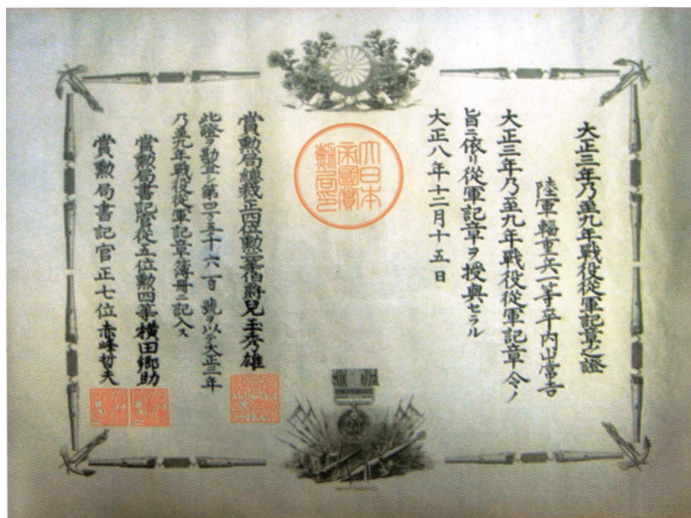 大正三年乃至九年戦役従軍記章之證
陸軍輜重兵一等卒内山常吉
大正三年乃至九年戦役従軍記章令ノ
旨ニ依リ従軍記章ヲ授與セラル
大正八年十二月十五日
大日本
帝國賞
勲局印
賞勲局總裁正四位勲二等伯爵兒玉秀雄
此證ヲ勘査シ第四 五十六百 號ヲ以テ大正三年
乃至九年戦役従軍記章簿冊ニ記入ス
賞勲局書記官従五位勲四等横田郷助
賞勲局書記官正七位赤峰哲夫